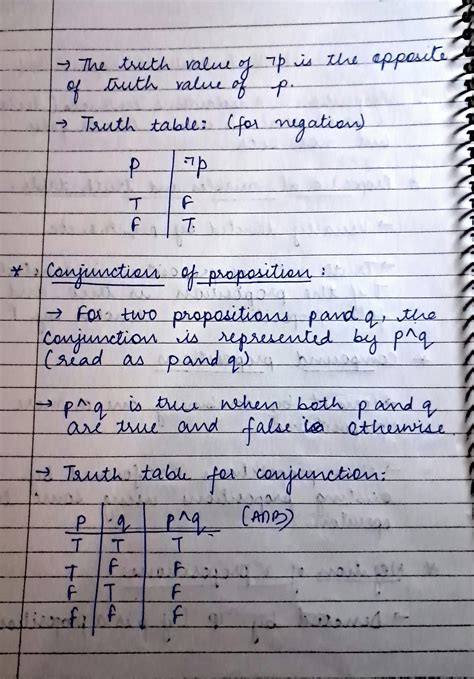 → The truth value of ¬p is the opposite
of truth value of p.
→ Truth table: (for negation)
p | ¬p
T | F
F | T
* Conjunction of proposition :
→ For two propositions p and q, the
conjunction is represented by p^q
(read as p and q)
→ p^q is true when both p and q
are true and false otherwise
→ Truth table for conjunction:
p | q | p^q (AND)
T | T | T
T | F | F
F | T | F
F | F | F